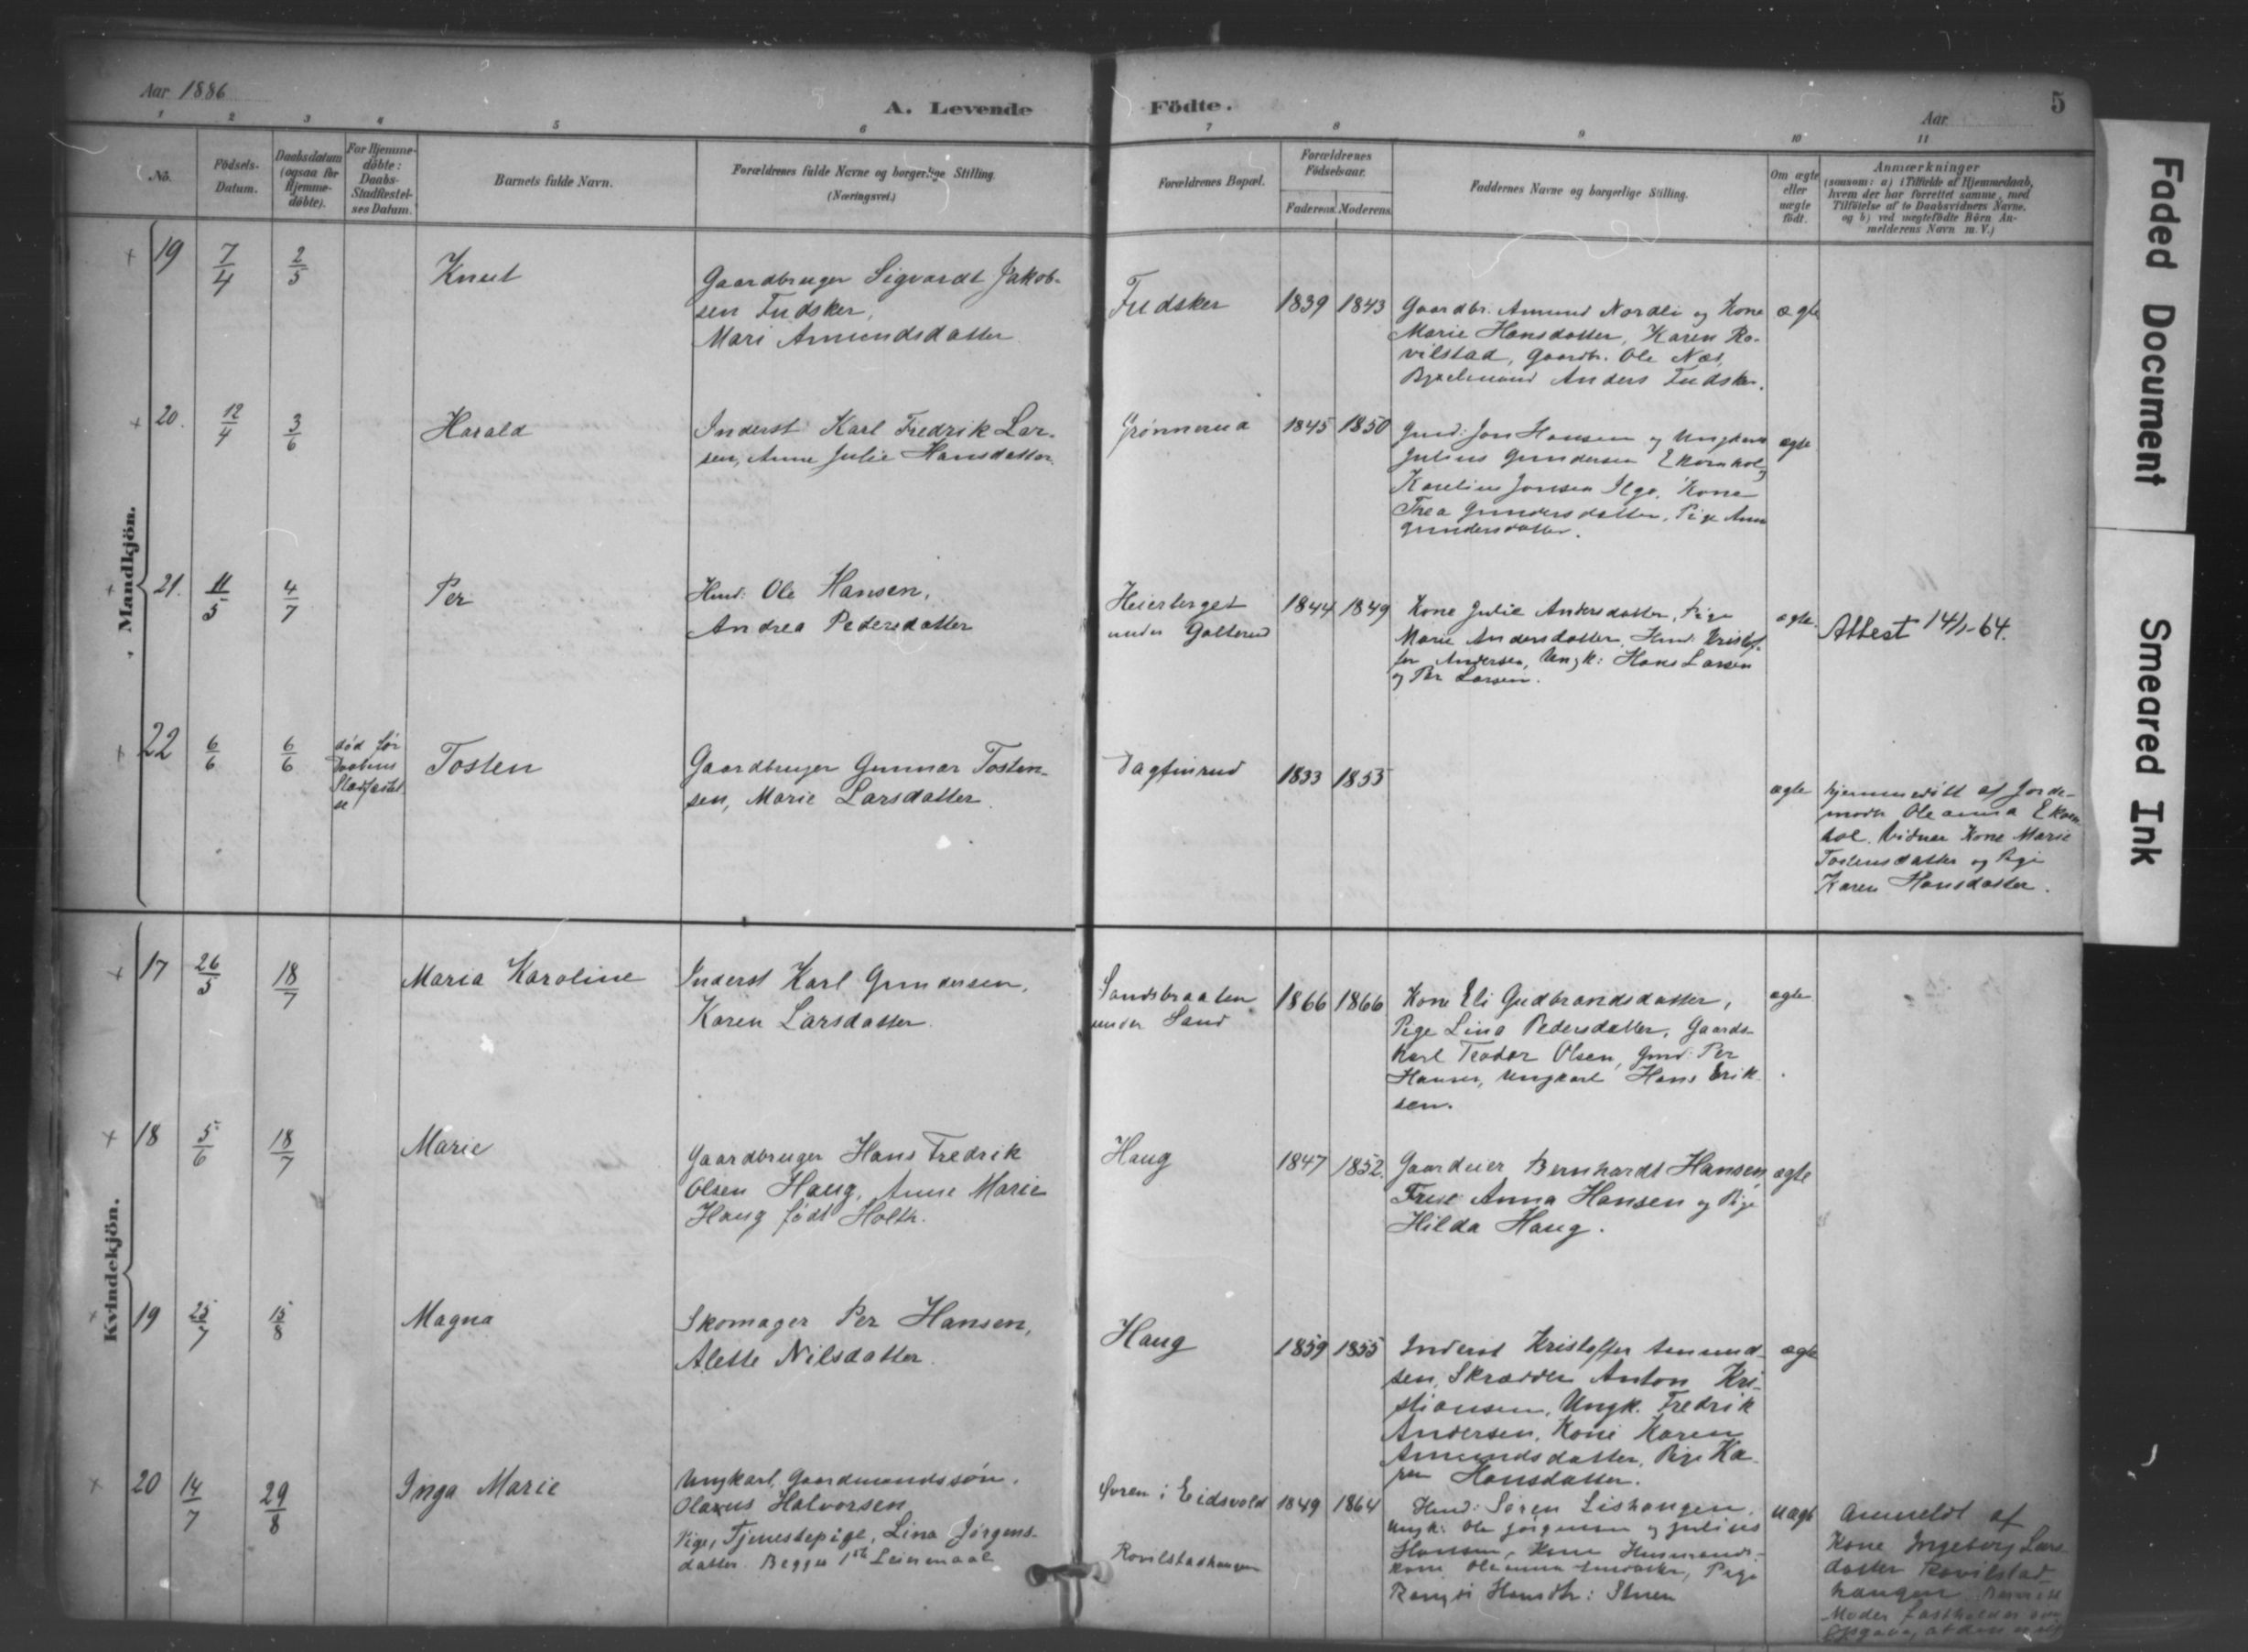 Aar 1886
A. Levende
Födte.
Aar
5
1 2 3 4 5 6 7 8 9 10 11
No.
Födsels-Datum.
Daabsdatum (ogsaa for Hjemme-döbte).
For Hjemme-döbte: Daabs-Stadfæstel-ses Datum.
Barnets fulde Navn.
Forældrenes fulde Navne og borgerlige Stilling.
(Næringsvei.)
Forældrenes Bopæl.
Forældrenes Födselsaar.
Faderens. Moderens.
Faddernes Navne og borgerlige Stilling.
Om ægte eller uægte födt.
Anmærkninger
(saasom: a) i Tilfælde af Hjemmedaab,
hvem der har forrettet samme, med
Tilföielse af to Daabsvidners Navne,
og b) ved uægtefödte Börn An-
melderens Navn m. V.)
Mandkjön.
19 7/4 2/5 Knut
Gaardbruger Sigvardt Jakob-
sen Fudsker,
Mari Amundsdatter
Fudsker 1839 1843
Gaardbr. Amund Nordli og Kone
Marie Hansdatter, Karen Ro-
vilstad, Gaardbr. Ole Næs,
Anders Fudsker.
ægte
20. 12/4 3/6 Harald
Inderst Karl Fredrik Lar-
sen, Anne Julie Hansdatter
Grønnerud 1845 1850
Gmd: Jon Hansen og Ungkarl
Julius Gundersen Ekornhol,
Karelius Jonsen Ilge, Kone
Thea Gundersdatter, Pige Anne
Gundersdatter.
ægte
21. 11/5 4/7 Per
Hmd: Ole Hansen,
Andrea Pedersdatter
Heierberget
under Galterud
1844 1849
Kone Julie Andersdatter, Pige
Marie Andersdatter, Hmd: Kristof-
fer Andersen, Ungk: Hans Larsen
og Per Larsen.
ægte
Attest 14/1-64.
22 6/6 6/6
død før
Daabens
Stadfæstel
se
Tosten
Gaardbruger Gunnar Tosten-
sen, Marie Larsdatter
Dagfinrud 1833 1853
ægte
hjemmedøbt af Jorde-
moder Oleanna Ekorn
hol. Vidner Kone Marie
Tostensdatter og Pige
Karen Hansdatter.
Kvindekjön.
17 26/5 18/7 Maria Karoline
Inderst Karl Gundersen,
Karen Larsdatter
Sandsbraaten
under Sand
1866 1866
Kone Eli Gudbrandsdatter,
Pige Lina Pedersdatter, Gaards-
karl Teodor Olsen, Gmd: Per
Hansen, Ungkarl Hans Erik
sen.
ægte
18 5/6 18/7 Marie
Gaardbruger Hans Fredrik
Olsen Haug, Anne Marie
Haug født Holth.
Haug 1847 1852.
Gaardeier Bernhardt Hansen
Frue Anna Hansen og Pige
Hilda Haug.
ægte
19 25/7 15/8 Magna
Skomager Per Hansen,
Alette Nilsdatter
Haug 1859 1855
Inderst Kristoffer Amund-
sen, Skrædder Anton Kri-
stiansen, Ungk. Fredrik
Andersen, Kone Karen
Amundsdatter, Pige Ka-
ren Hansdatter.
ægte
20 14/7 29/8 Inga Marie
Ungkarl, Gaardmandssøn,
Olaus Halvorsen
Pige, Tjenestepige, Lina Jørgens-
datter. Begges 1ste Leiermaal
i Eidsvold
Rovilstadhaugen
1849 1864
Hmd: Søren Lishaugen,
Ungk: Ole Jørgensen og Julius
Hansen, Kone
Kone Oleanna, Pige
Hansdtr: Stuen
uægt
anmeldt af
Kone Ingeborg Lars
datter Rovilstad
haugen
Moder fastholder
Faded Document
Smeared Ink